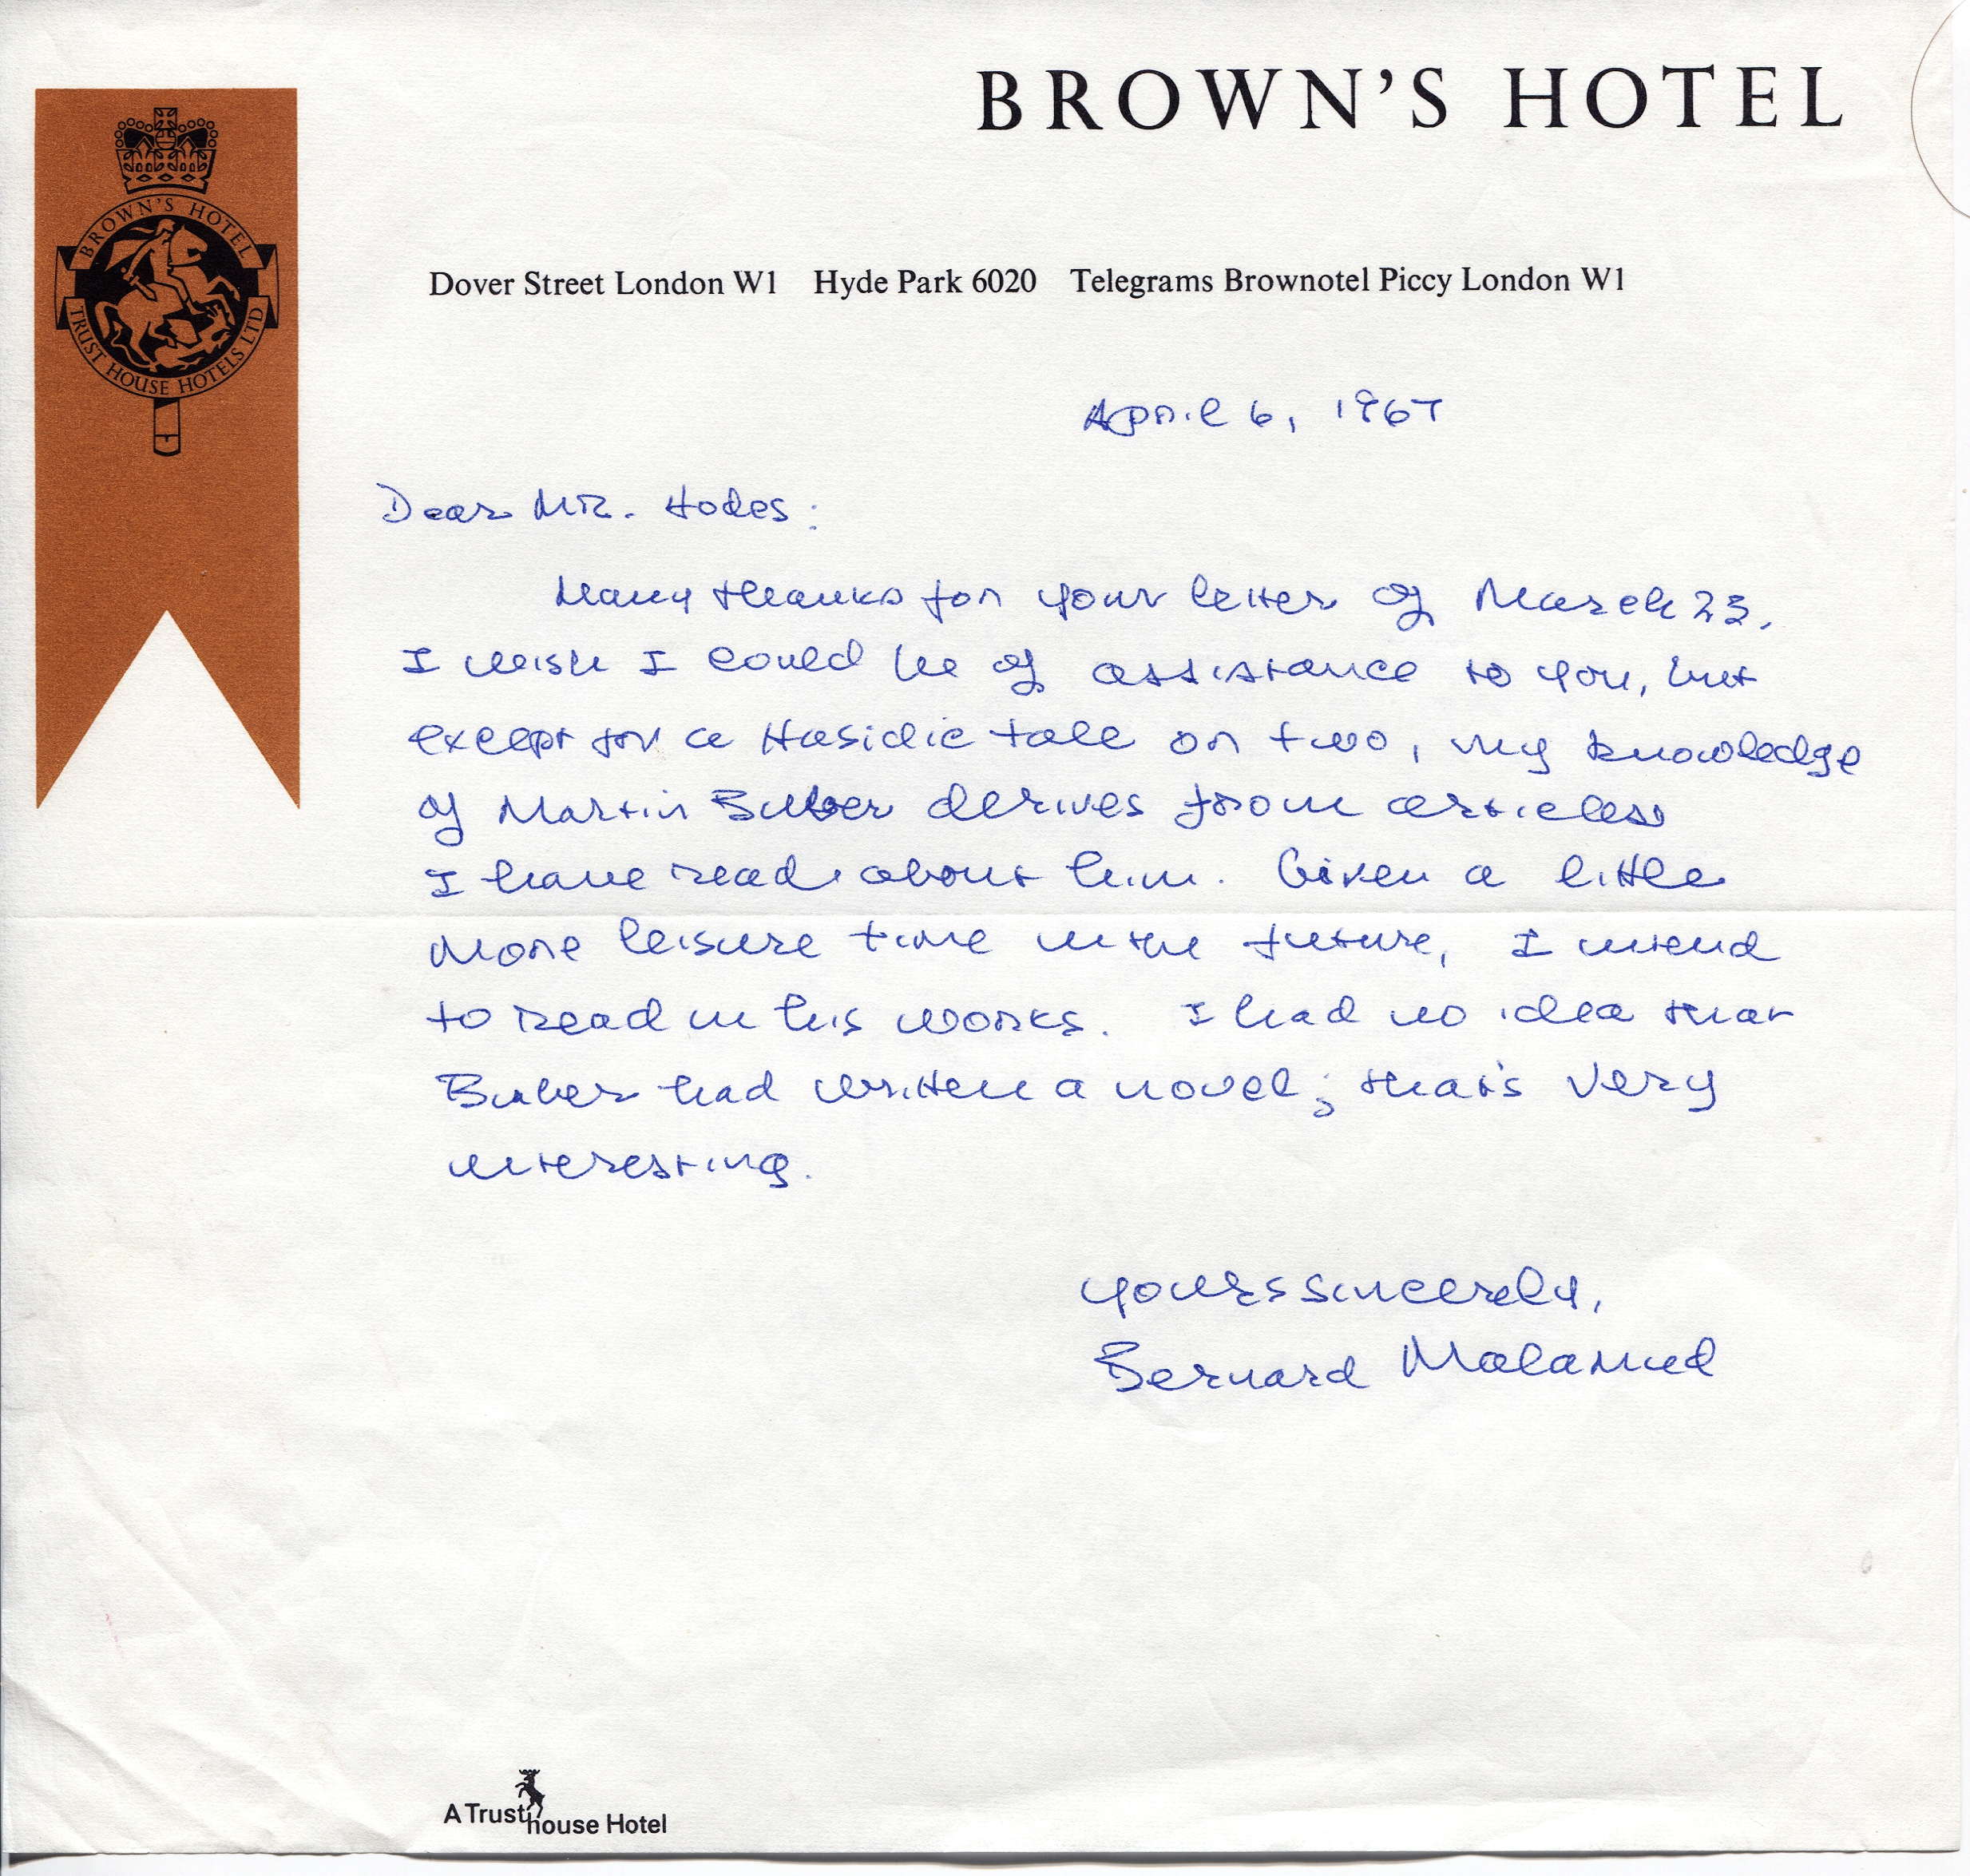 BROWN'S HOTEL
BROWN'S HOTEL
TRUST HOUSE HOTELS LTD
Dover Street London W1 Hyde Park 6020 Telegrams Brownotel Piccy London W1
April 6, 1967
Dear Mr. Hodes:
Many thanks for your letter of March 23.
I wish I could be of assistance to you, but
except for a Hasidic tale or two, my knowledge
of Martin Buber derives from articles
I have read about him. Given a little
more leisure time in the future, I intend
to read in his works. I had no idea that
Buber had written a novel; that's very
interesting.
Yours sincerely,
Bernard Malamud
A Trust house Hotel